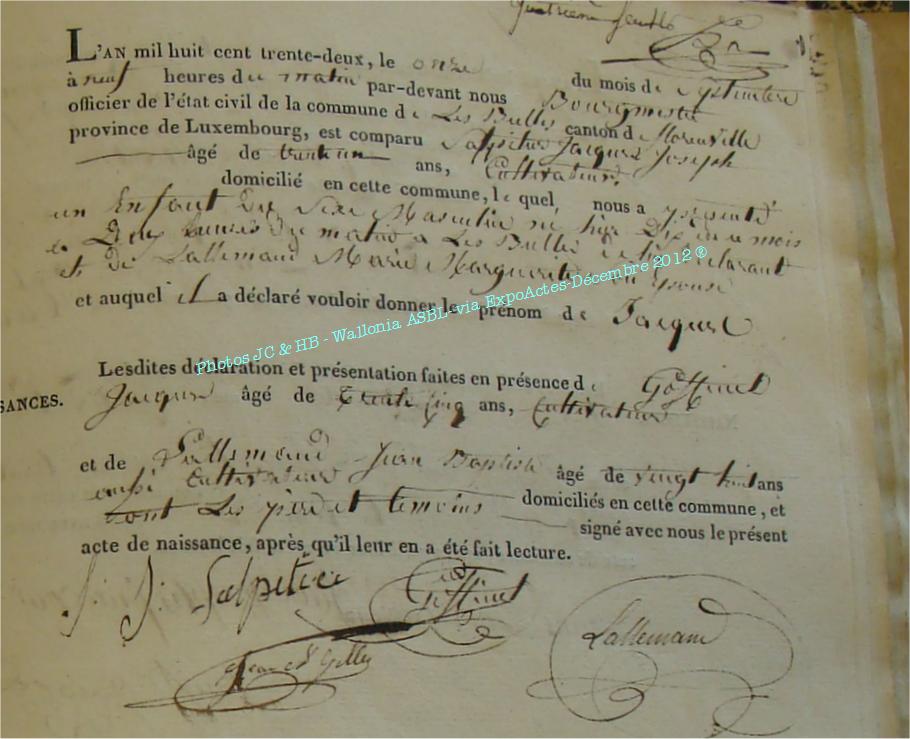 quatrième feuille
L'AN mil huit cent trente-deux, le onze du mois de septembre
à neuf heures du matin par-devant nous Bourgmestre
officier de l'état civil de la commune de Les Bulles canton de Florenville
province de Luxembourg, est comparu Salpeteur Jacques Joseph
âgé de trente un ans, Cultivateur
domicilié en cette commune, lequel nous a présenté
un Enfant du Sexe Masculin né hier Dix du mois
à Deux heures du matin à Les Bulles de lui déclarant
et de Lallemand Marie Marguerite son Epouse
et auquel il a déclaré vouloir donner le prénom de Jacques
Lesdites déclaration et présentation faites en présence de Goffinet
SANCES.
Jacques âgé de trente cinq ans, Cultivateur
et de Lallemand Jean Baptiste âgé de vingt huit ans
aussi Cultivateur domiciliés en cette commune, et
sont les père et temoins signé avec nous le présent
acte de naissance, après qu'il leur en a été fait lecture.
J. J. Salpeteur
Goffinet
Lallemand
Photos JC & HB - Wallonia ASBL-via ExpoActes-Décembre 2012 ®